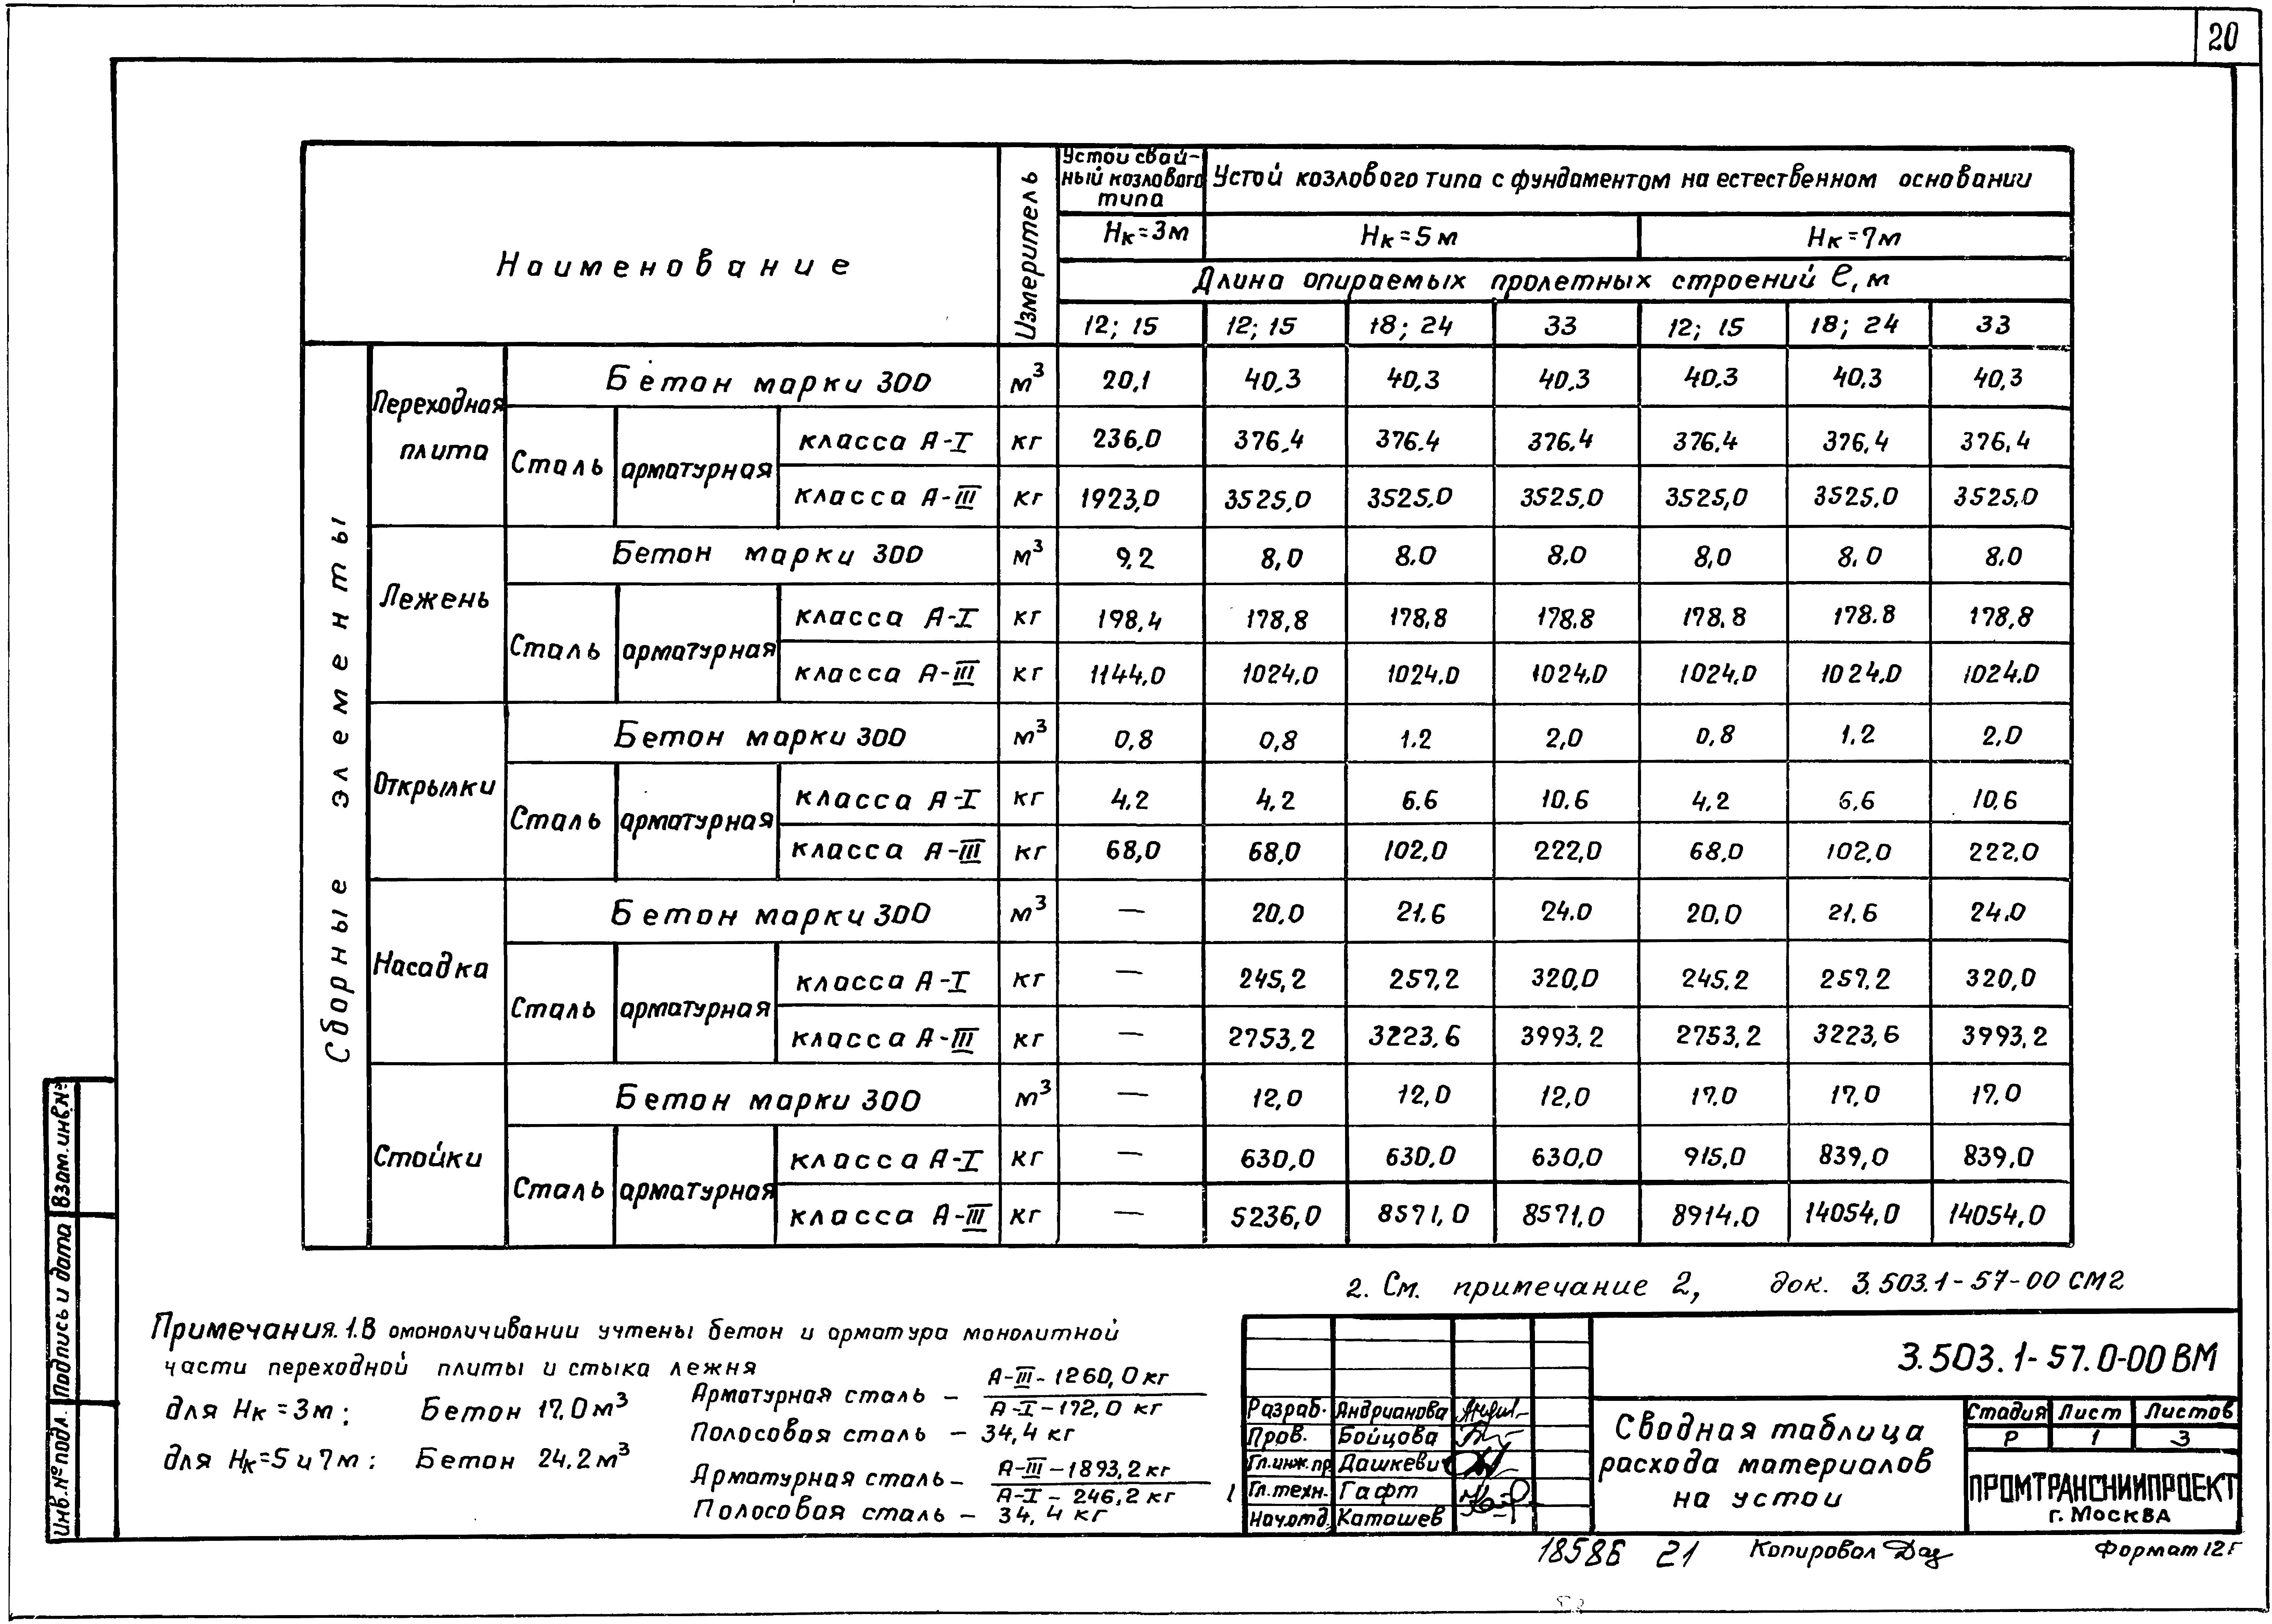 20
Наименование
Измеритель
Устои свай-
ный козлового
типа
Устой козлового типа с фундаментом на естественном основании
Нк=3м
Нк=5м
Нк=7м
Длина опираемых пролетных строений ℓ, м
12; 15
12; 15
18; 24
33
12; 15
18; 24
33
Сборные элементы
Переходная
плита
Бетон марки 300 м³ 20,1 40,3 40,3 40,3 40,3 40,3 40,3
Сталь арматурная
класса А-I кг 236,0 376,4 376.4 376,4 376,4 376,4 376,4
класса А-III кг 1923,0 3525,0 3525,0 3525,0 3525,0 3525,0 3525,0
Лежень
Бетон марки 300 м³ 9,2 8,0 8,0 8,0 8,0 8,0 8,0
Сталь арматурная
класса А-I кг 198,4 178,8 178,8 178.8 178,8 178.8 178,8
класса А-III кг 1144,0 1024,0 1024,0 1024,0 1024,0 1024,0 1024,0
Открылки
Бетон марки 300 м³ 0,8 0,8 1.2 2,0 0,8 1,2 2,0
Сталь арматурная
класса А-I кг 4,2 4,2 6.6 10.6 4,2 6,6 10,6
класса А-III кг 68,0 68,0 102,0 222,0 68,0 102,0 222,0
Насадка
Бетон марки 300 м³ — 20,0 21,6 24.0 20,0 21,6 24,0
Сталь арматурная
класса А-I кг — 245,2 257,2 320,0 245,2 257,2 320,0
класса А-III кг — 2753,2 3223,6 3993,2 2753,2 3223,6 3993,2
Стойки
Бетон марки 300 м³ — 12,0 12,0 12,0 17.0 17,0 17.0
Сталь арматурная
класса А-I кг — 630,0 630,0 630,0 915,0 839,0 839,0
класса А-III кг — 5236,0 8571,0 8571,0 8914,0 14054,0 14054,0
2. См. примечание 2, док. 3.503.1-57-00 СМ2
Примечания. 1. В омоноличивании учтены бетон и арматура монолитной
части переходной плиты и стыка лежня
для Нк=3м; Бетон 17.0 м³
Арматурная сталь — А-III - 1260,0 кг
А-I - 172,0 кг
Полосовая сталь — 34,4 кг
для Нк=5 и 7м; Бетон 24.2 м³
Арматурная сталь — А-III - 1893,2 кг
А-I - 246,2 кг
Полосовая сталь — 34,4 кг
Инв.№ подл. Подпись и дата Взам.инв№
Разраб. Андрианова
Пров. Бойцова
Гл.инж.пр Дашкевич
Гл.техн. Гафт
Нач.отд. Каташев
3.503.1-57.0-00 ВМ
Сводная таблица
расхода материалов
на устои
Стадия Лист Листов
Р 1 3
ПРОМТРАНСНИИПРОЕКТ
г. Москва
18586 21 Копировал Формат 12Г